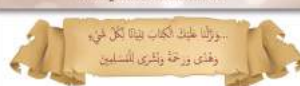 ...وَنَزَّلْنَا عَلَيْكَ الْكِتَابَ تِبْيَانًا لِّكُلِّ شَيْءٍ
وَهُدًى وَرَحْمَةً وَبُشْرَى لِلْمُسْلِمِينَ